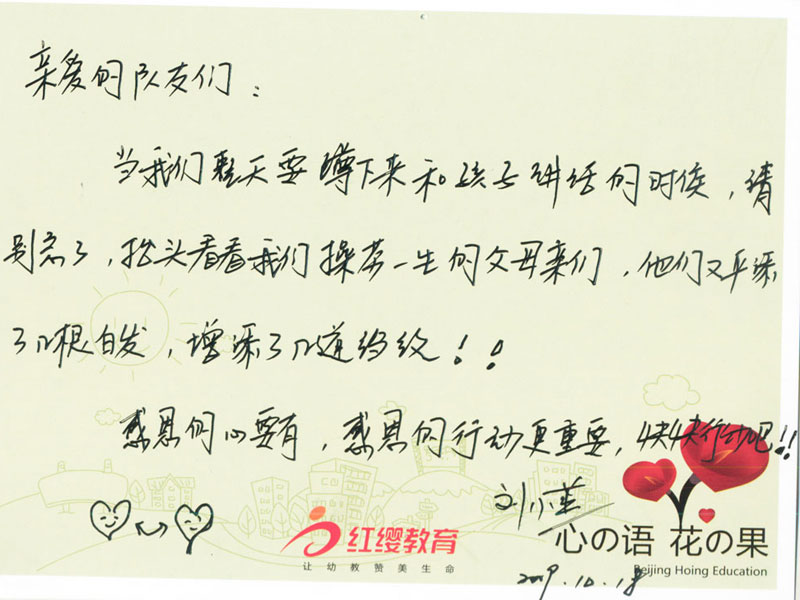 亲爱的队友们：
当我们整天要蹲下来和孩子讲话的时候，请
别忘了，抬头看看我们操劳一生的父母亲们，他们又平添
了几根白发，增添了几道皱纹！！
感恩的心要有，感恩的行动更重要，快快行动吧!!
刘小
红缨教育
让幼教赞美生命
心の语 花の果
Beijing Hoing Education
2009.10.18